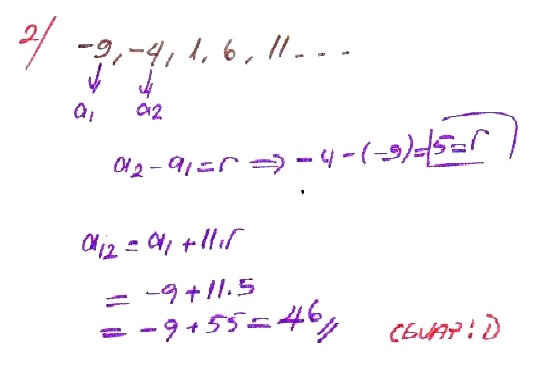 2/ -9, -4, 1, 6, 11 - - -
a₁ a₂
a₂ - a₁ = r ⇒ -4 - (-9) = 5 = r
a₁₂ = a₁ + 11.r
= -9 + 11.5
= -9 + 55 = 46 //
CEVAP: D